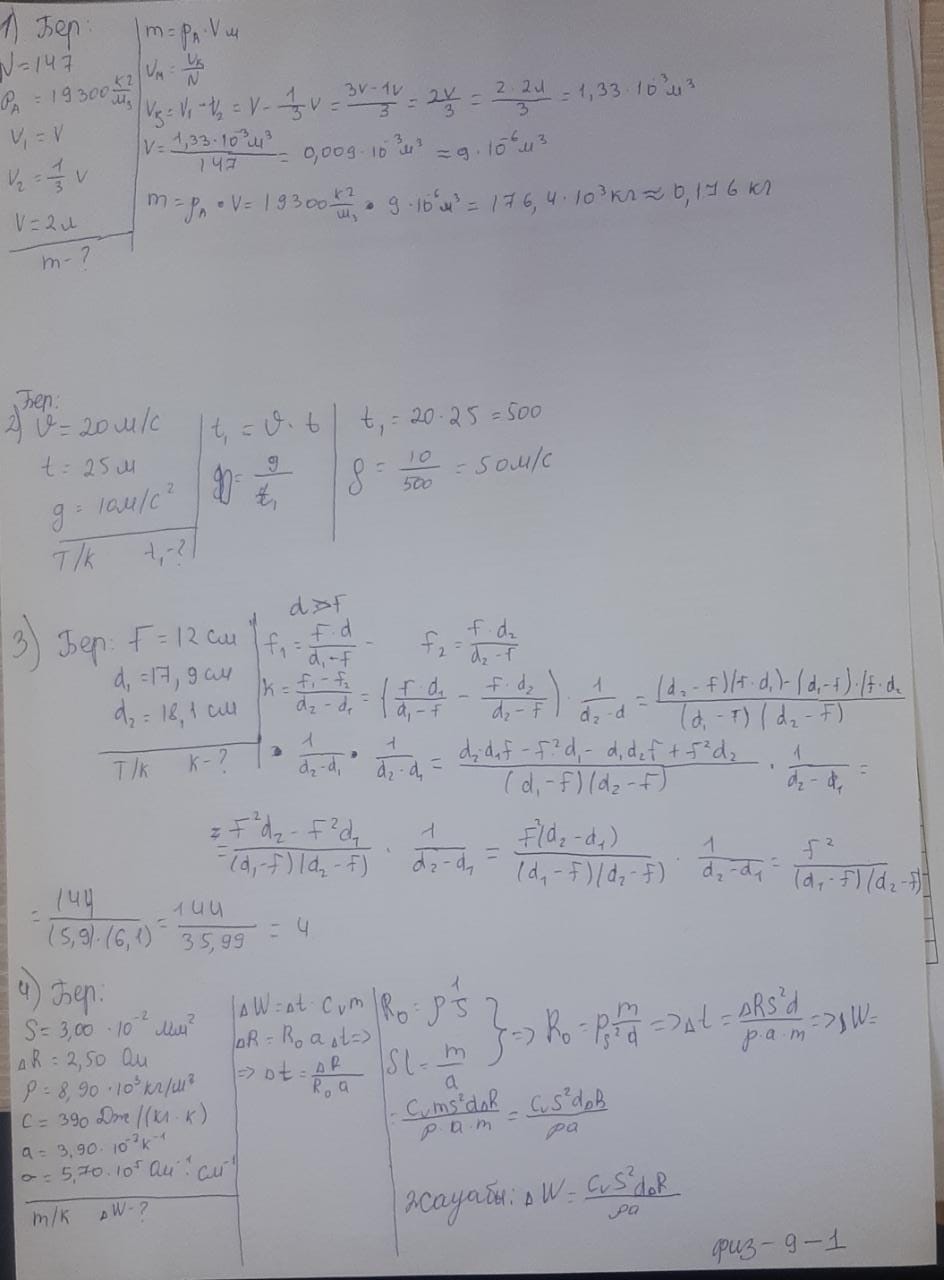 1) Бер:
N=147
ρ_A = 19300 кг/м³
V₁ = V
V₂ = 1/3 V
V = 2л
m-?
m = ρ_A · Vм
Vм = Vб/N
Vб = V₁ - V₂ = V - 1/3 V = (3V-1V)/3 = 2V/3 = (2·2л)/3 = 1,33·10⁻³м³
V = (1,33·10⁻³м³)/147 = 0,009·10⁻³м³ = 9·10⁻⁶м³
m = ρ_A • V = 19300 кг/м³ • 9·10⁻⁶м³ = 176,4·10³кг ≈ 0,176 кг
Бер:
2) ϑ = 20 м/с
t = 25 м
g = 10м/с²
Т/к t₁-?
t₁ = ϑ · t
= g/t₁
t₁ = 20·25 = 500
= 10/500 = 50м/с
3) Бер: F = 12 см
d₁ = 17,9 см
d₂ = 18,1 см
Т/к к-?
d>F
f₁ = (F·d)/(d₁-F) - f₂ = (F·d₂)/(d₂-F)
к = (f₁-f₂)/(d₂-d₁) = ((F·d₁)/(d₁-F) - (F·d₂)/(d₂-F)) · 1/(d₂-d) = ((d₂-F)(F·d₁)-(d₁-F)·(F·d₂)/((d₁-F)(d₂-F)
• 1/(d₂-d₁) • 1/(d₂-d₁) = (d₂·d₁F - F²d₁ - d₁d₂F + F²d₂)/((d₁-F)(d₂-F)) · 1/(d₂-d₁) =
= (F²d₂ - F²d₁)/((d₁-F)(d₂-F)) · 1/(d₂-d₁) = F²(d₂-d₁)/((d₁-F)(d₂-F)) · 1/(d₂-d₁) = F²/((d₁-F)(d₂-F)
= 144/((5,9)·(6,1)) = 144/35,99 = 4
4) Бер:
S = 3,00 · 10⁻² мм²
ΔR = 2,50 Ом
ρ = 8,90 · 10³кг/м³
c = 390 Дж/(кг·к)
a = 3,90 · 10⁻³к⁻¹
σ = 5,70·10⁵ Ом⁻¹·см⁻¹
m/к ΔW-?
ΔW = Δt · Cvm
ΔR = R₀ a Δt =>
=> Δt = ΔR/(R₀ a)
R₀ = ρ 1/S
Sl = m/a
=> R₀ = ρ m/(s²d) => Δt = (ΔRS²d)/(ρ·a·m) => ΔW =
= (Cvms²dΔR)/(ρ·a·m) = (CvS²dΔR)/(ρa)
Жауабы: ΔW = (CvS²dΔR)/(ρa)
физ-9-1